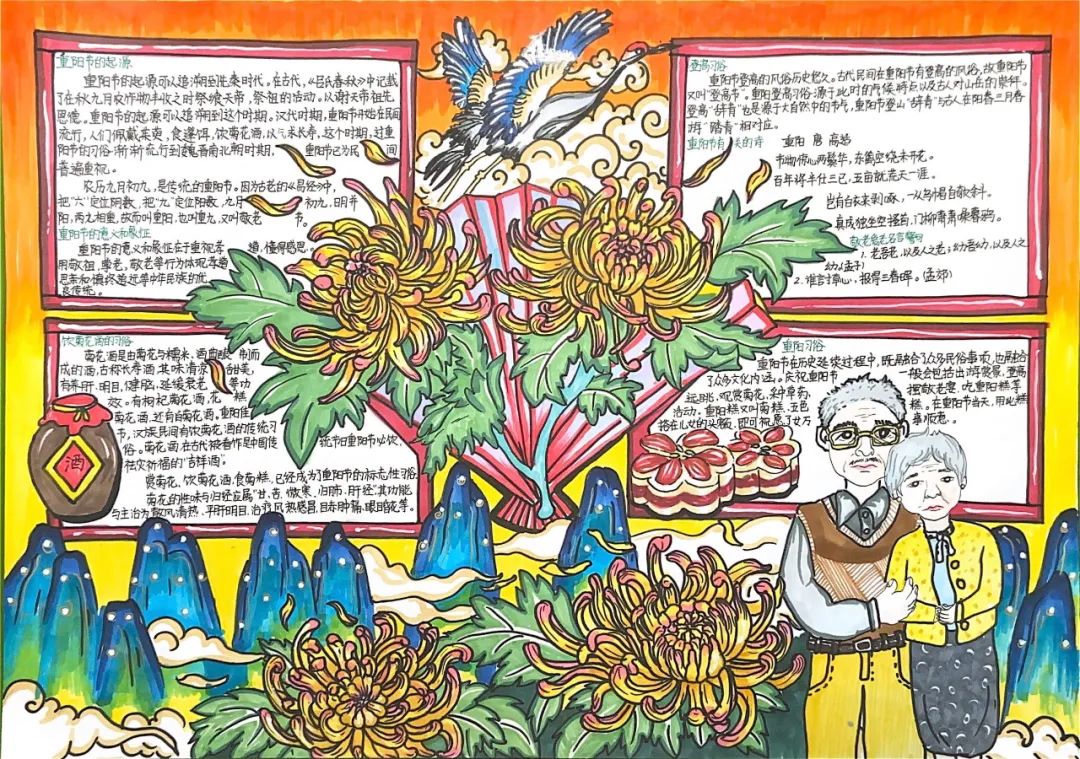 重阳节的起源
重阳节的起源可以追溯到先秦时代。在古代,《吕氏春秋》中记载
了在秋九月农作物丰收之时祭飨天帝,祭祖的活动。以谢天帝、祖先
恩德。重阳节的起源可以追溯到这个时期。汉代时期,重阳节开始在民间
流行,人们佩戴茱萸,食蓬饵,饮菊花酒,以求长寿,这个时期,过重
阳节的习俗渐渐流行到魏晋南北朝时期, 重阳节已为民 间
普遍重视。
农历九月初九,是传统的重阳节。因为古老的《易经》中,
把“六”定位阴数,把“九”定位阳数,九月 初九,日月并
阳,两九相重,故而叫重阳,也叫重九,又叫敬老 节。
重阳节的意义和象征
重阳节的意义和象征在于重视孝 道,懂得感恩。
用敬祖,尊老,敬老等行为体现孝道
思亲和慎终追远等中华民族的优
良传统。
登高习俗
重阳节登高的风俗历史悠久。古代民间在重阳节有登高的风俗,故重阳节
又叫“登高节”。重阳登高习俗源于此时的气候特点以及古人对山岳的崇拜。
登高“辞青”也是源于大自然中的节气,重阳节登山“辞青”与古人在阳春三月春
游“踏青”相对应。
重阳节有关的诗 重阳 唐 高适
节物惊心两鬓华,东篱空绕未开花。
百年将半仕三已,五亩就荒天一涯。
岂有白衣来剥啄,一从乌帽自欹斜。
真成独坐空搔首,门柳萧萧噪暮鸦。
敬老爱老名言警句
1.老吾老,以及人之老;幼吾幼,以及人之
幼(孟子)
2.谁言寸草心,报得三春晖。(孟郊)
饮菊花酒的习俗
菊花酒是由菊花与糯米、酒曲酿 制而
成的酒,古称长寿酒,其味清凉 甜美,
有养肝、明目、健脑、延缓衰老 等功
效。有枸杞菊花酒、花 糕
菊花酒,还有白菊花酒。重阳佳
节,汉族民间有饮菊花酒的传统习
俗。菊花酒在古代被看作是中国传 统节日重阳节必饮、
祛灾祈福的“吉祥酒”。
赏菊花、饮菊花酒、食菊糕,已经成为了重阳节的标志性习俗
菊花的性味与归经应属“甘、苦、微寒、归肺、肝经”,其功能
与主治为“散风清热、平肝明目,治疗风热感冒,目赤肿痛,眼目昏花等。
酒
重阳习俗
重阳节在历史延续过程中,既融合了众多民俗事项,也融合
了众多文化内涵。庆祝重阳节 一般会包括出游赏景、登高
远眺、观赏菊花、采中草药、 摆敬老宴、吃重阳糕等
活动。重阳糕又叫菊糕、五色 糕。在重阳节当天,用此糕
搭在儿女的头额,即可祝愿子女万 事顺意。